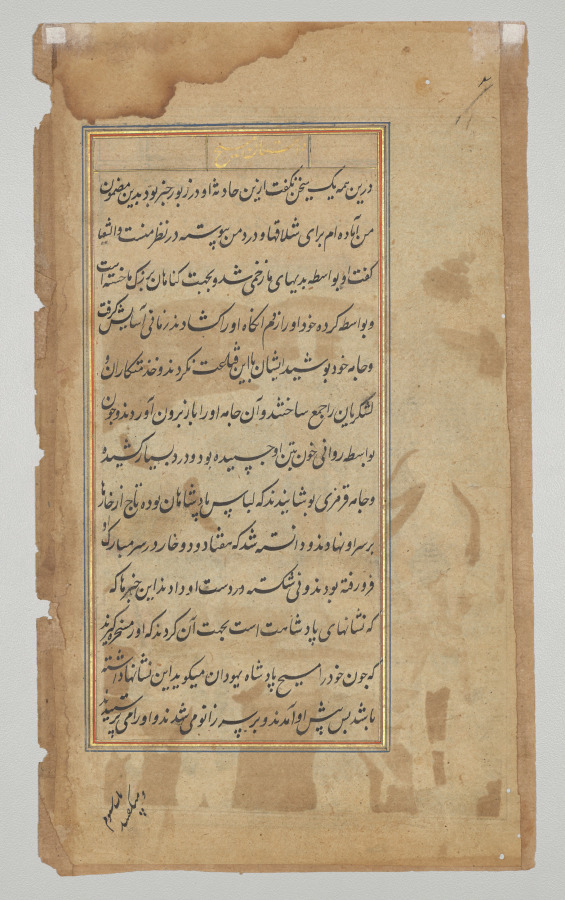 درین همه یک سخن نگفت ازین حادثه او در زبور خبر بود بدین مضمون
من آماده ام برای شلاقها و درد من پیوسته در نظر منست و اشعیا
گفت او بواسطه بدیهای ما زخمی شد و بجهت کناهان بزرک ما خسته است
و بواسطه کرده خود او را از قم انکاه او را کشادند زمانی آسایش گرفت
و جامه خود پوشید ایشان باین قباحت نکردند و خدمتکاران و
لشکریان را جمع ساختند و آن جامه او را باز برون آوردند و چون
بواسطه روانی خون بتن او چسپیده بود و درد بسیار کشید و
و جامه قرمزی پوشانیدند که لباس پادشاهان بوده تاج از خارها
بر سر او نهادند و دانسته شد که هفتاد و دو خار در سر مبارک او
فرو رفته بودند و نی شکسته در دست او دادند این چیزها که
که نشانهای پادشاهست است بجهت آن کردند که او را مسخره گیرند
که چون خود را مسیح پادشاه یهودان میکوید این نشانها داشته
باشد پس پیش او آمدند و بر سر زانو می شدند و او را می پرستیدند